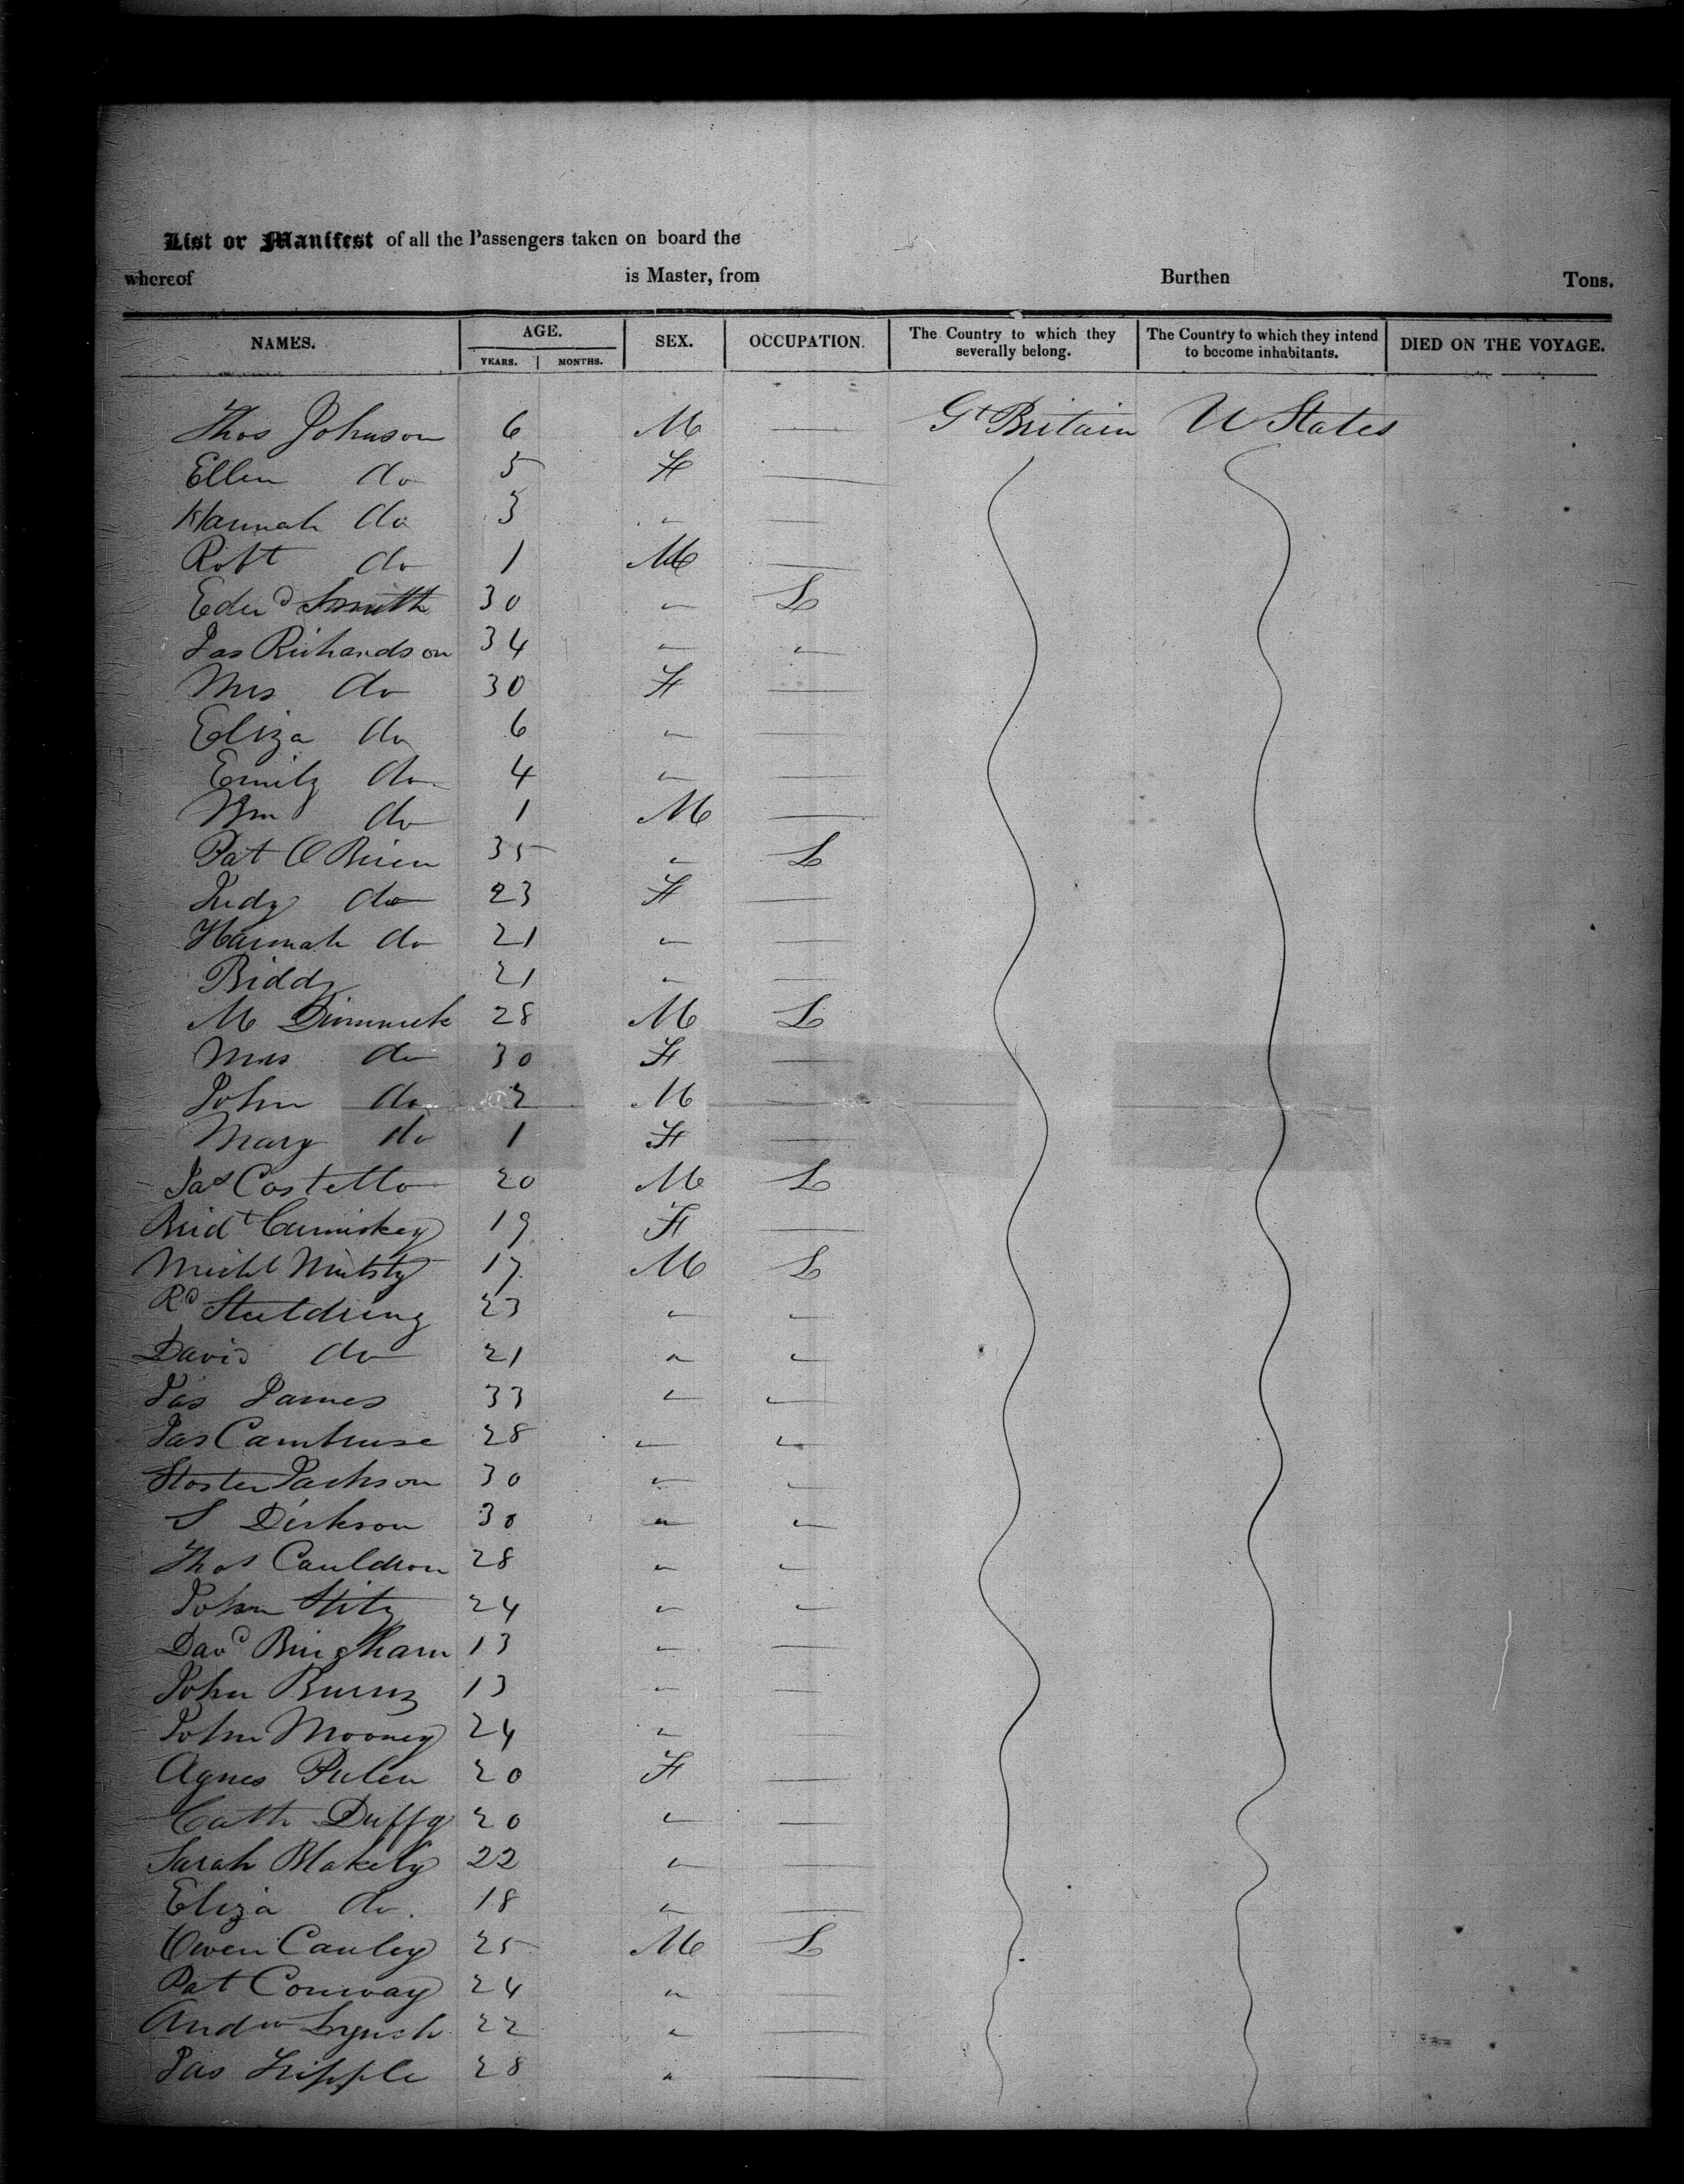 List or Manifest of all the Passengers taken on board the
whereof is Master, from Burthen Tons.
NAMES. AGE. SEX. OCCUPATION. The Country to which they severally belong. The Country to which they intend to become inhabitants. DIED ON THE VOYAGE.
YEARS. MONTHS.
Thos Johnson 6 M — Gt Britain U States
Ellen do 5 F —
Hannah do 3 " —
Robt do 1 M —
Edwd Smith 30 " L
Jas Richardson 34 " "
Mrs do 30 F —
Eliza do 6 " —
Emily do 4 " —
Wm do 1 M —
Pat O Brien 35 " L
Judy do 23 F —
Hannah do 21 " —
Biddy 21 " —
M Dimmick 28 M L
Mrs do 30 F —
John do 2 M —
Mary do 1 F —
Jas Costello 20 M L
Bridt Cumiskey 19 F —
Michl 17 M L
Rd 23 " "
David do 21 " "
Jas James 33 " "
Jas 28 " "
Jackson 30 " "
S Dickson 30 " "
Thos Cauldron 28 " "
John 24 " "
Davd Bingham 13 " —
John Burns 13 " —
John Mooney 24 " —
Agnes 20 F —
Cath Duffy 20 " —
Sarah Blakely 22 " —
Eliza do. 18 " —
Owen Cauley 25 M L
Pat Conway 24 " —
Andw Lynch 22 " —
Jas 28 " —